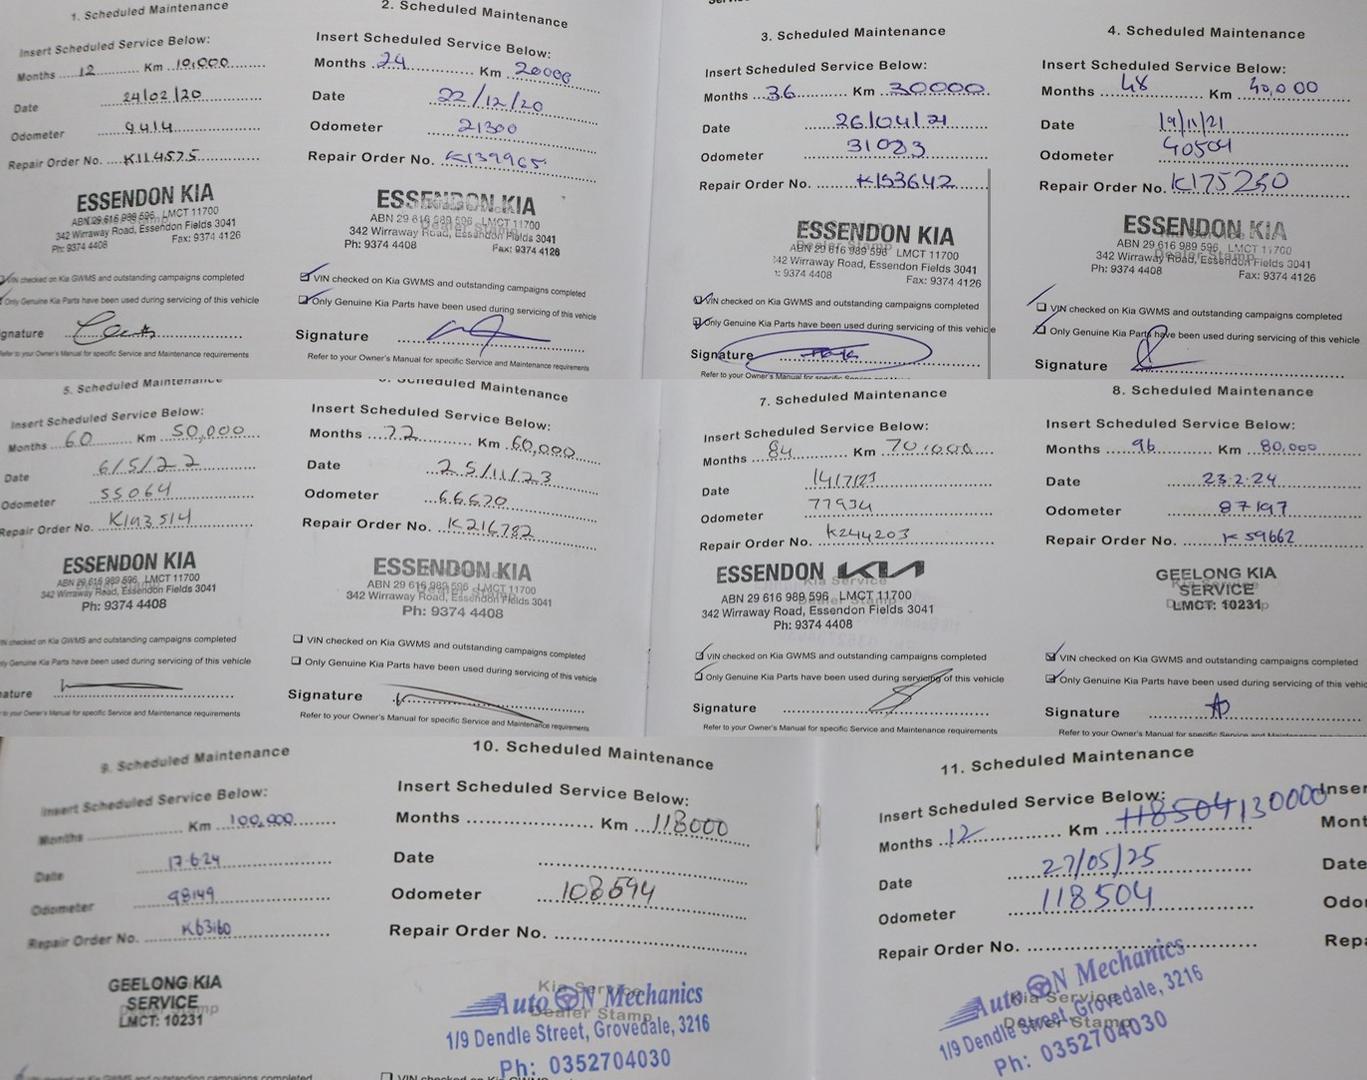 1. Scheduled Maintenance
Insert Scheduled Service Below:
Months 12 Km 10,000
Date 24/02/20
Odometer 9414
Repair Order No. K114575
ESSENDON KIA
ABN 29 616 989 596 LMCT 11700
342 Wirraway Road, Essendon Fields 3041
Ph: 9374 4408 Fax: 9374 4126
VIN checked on Kia GWMS and outstanding campaigns completed
Only Genuine Kia Parts have been used during servicing of this vehicle
gnature
Refer to your Owner's Manual for specific Service and Maintenance requirements
2. Scheduled Maintenance
Insert Scheduled Service Below:
Months 24 Km 20000
Date 22/12/20
Odometer 21300
Repair Order No. K139965
ESSENDON KIA
ABN 29 616 989 596 LMCT 11700
342 Wirraway Road, Essendon Fields 3041
Ph: 9374 4408 Fax: 9374 4126
VIN checked on Kia GWMS and outstanding campaigns completed
Only Genuine Kia Parts have been used during servicing of this vehicle
Signature
Refer to your Owner's Manual for specific Service and Maintenance requirements
3. Scheduled Maintenance
Insert Scheduled Service Below:
Months 36 Km 30000
Date 26/04/21
Odometer 31083
Repair Order No. K153642
ESSENDON KIA
ABN 29 616 989 596 LMCT 11700
342 Wirraway Road, Essendon Fields 3041
: 9374 4408 Fax: 9374 4126
VIN checked on Kia GWMS and outstanding campaigns completed
Only Genuine Kia Parts have been used during servicing of this vehicle
Signature
Refer to your Owner's Manual for specific Service and Maintenance
4. Scheduled Maintenance
Insert Scheduled Service Below:
Months 48 Km 40,000
Date 19/11/21
Odometer 40504
Repair Order No. K175250
ESSENDON KIA
ABN 29 616 989 596 LMCT 11700
342 Wirraway Road, Essendon Fields 3041
Ph: 9374 4408 Fax: 9374 4126
VIN checked on Kia GWMS and outstanding campaigns completed
Only Genuine Kia Parts have been used during servicing of this vehicle
Signature
5. Scheduled Maintenance
Insert Scheduled Service Below:
Months 60 Km 50,000
Date 6/5/22
Odometer 55064
Repair Order No. K193514
ESSENDON KIA
ABN 29 616 989 596 LMCT 11700
342 Wirraway Road, Essendon Fields 3041
Ph: 9374 4408
VIN checked on Kia GWMS and outstanding campaigns completed
Only Genuine Kia Parts have been used during servicing of this vehicle
ature
to your Owner's Manual for specific Service and Maintenance requirements
Scheduled Maintenance
Insert Scheduled Service Below:
Months 72 Km 60,000
Date 25/11/23
Odometer 66620
Repair Order No. K216782
ESSENDON KIA
ABN 29 616 989 596 LMCT 11700
342 Wirraway Road, Essendon Fields 3041
Ph: 9374 4408
VIN checked on Kia GWMS and outstanding campaigns completed
Only Genuine Kia Parts have been used during servicing of this vehicle
Signature
Refer to your Owner's Manual for specific Service and Maintenance requirements
7. Scheduled Maintenance
Insert Scheduled Service Below:
Months 84 Km 70,000
Date
Odometer 77934
Repair Order No. K244203
ESSENDON KIA
ABN 29 616 989 596 LMCT 11700
342 Wirraway Road, Essendon Fields 3041
Ph: 9374 4408
VIN checked on Kia GWMS and outstanding campaigns completed
Only Genuine Kia Parts have been used during servicing of this vehicle
Signature
Refer to your Owner's Manual for specific Service and Maintenance requirements
8. Scheduled Maintenance
Insert Scheduled Service Below:
Months 96 Km 80,000
Date 23.2.24
Odometer 87197
Repair Order No. K59662
GEELONG KIA
SERVICE
LMCT: 10231
VIN checked on Kia GWMS and outstanding campaigns completed
Only Genuine Kia Parts have been used during servicing of this vehic
Signature
Refer to your Owner's Manual for specific Service and Maintenance
9. Scheduled Maintenance
Insert Scheduled Service Below:
Months Km 100,000
Date 17.6.24
Odometer 98149
Repair Order No. K63160
GEELONG KIA
SERVICE
LMCT: 10231
checked on Kia GWMS and outstanding campaigns completed
10. Scheduled Maintenance
Insert Scheduled Service Below:
Months Km 118000
Date
Odometer 108594
Repair Order No.
Kia Service
Dealer Stamp
Auto ON Mechanics
1/9 Dendle Street, Grovedale, 3216
Ph: 0352704030
VIN checked on Kia GWMS
11. Scheduled Maintenance
Insert Scheduled Service Below:
Months 12 Km 118504 130000
Date 27/05/25
Odometer 118504
Repair Order No.
Kia Service
Dealer Stamp
Auto ON Mechanics
1/9 Dendle Street, Grovedale, 3216
Ph: 0352704030
Inser
Mont
Date
Odo
Repa